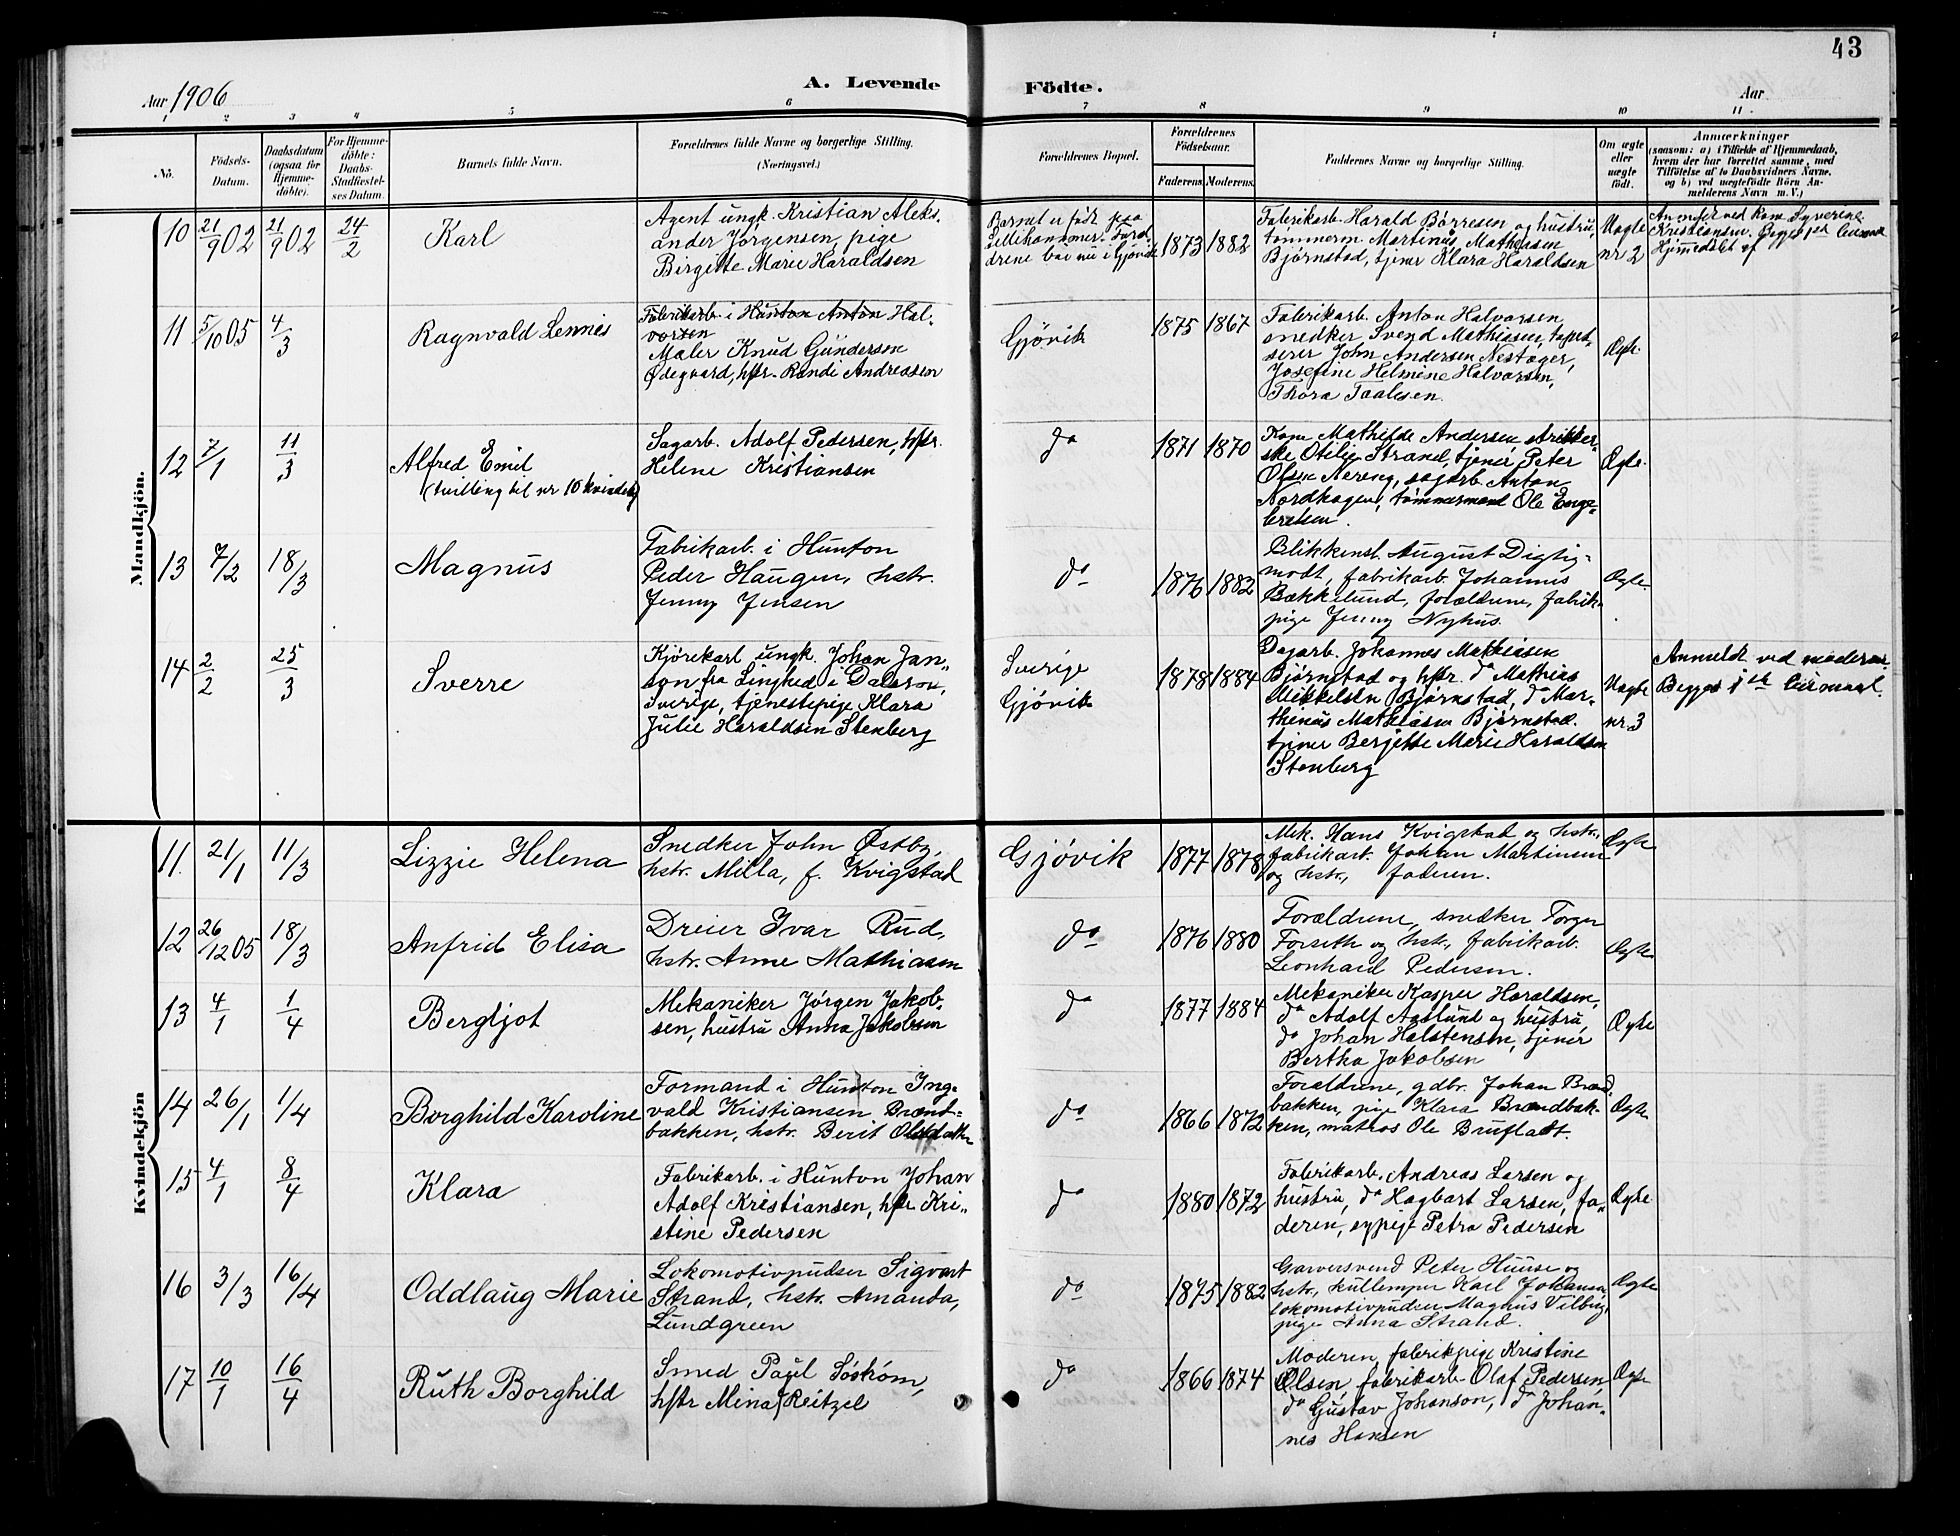 43
Aar 1906
A. Levende
Födte.
Aar
1 2 3 4 5 6 7 8 9 10 11
No.
Födsels-
Datum.
Daabsdatum
(ogsaa for
Hjemme-
döbte).
For Hjemme-
döbte:
Daabs-
Stadfæstel-
ses Datum.
Barnets fulde Navn.
Forældrenes fulde Navne og borgerlige Stilling.
(Næringsvei.)
Forældrenes Bopæl.
Forældrenes
Födselsaar.
Faderens. Moderens.
Faddernes Navne og borgerlige Stilling.
Om ægte
eller
uægte
födt.
Anmærkninger
(saasom: a) i Tilfælde af Hjemmedaab,
hvem der har forrettet samme, med
Tilföielse af to Daabsvidners Navne,
og b) ved uægtefödte Börn An-
melderens Navn m. V.)
Mandkjön.
10 21/9 02 21/9 02 24/2
Karl
Agent ungk. Kristian Aleks-
ander Jörgensen, pige
Birgitte Marie Haraldsen
Barnet er födt paa
Lillehammer. Foræl
drene bor nu i Gjövik
1873 1882
Fabrikarb. Harald Börresen og hustru,
tömmerm. Martinus Mathiasen
Bjørnstad, tjener Klara Haraldsen
Uægte
nr 2
Anmeldt ved kone Syverine
Kristiansen. Begges 1ste leiermaal
Hjemmedöbt af
11 5/10 05 4/3
Ragnvald Lennes
Fabrikarb. i Hunton Anton Hal-
vorsen
Maler Knud Gundersen
Ødegaard, hstr. Rande Andreasen
Gjövik
1875 1867
Fabrikarb. Anton Halvorsen
snedker Svend Mathiasen, tapet-
serer John Andersen Nestæger,
Josefine Helmine Halvorsen,
Thora Taalesen.
Ægte
12 7/1 11/3
Alfred Emil
(tvilling til nr 10 kvindekj)
Sagarb. Adolf Pedersen, hstr.
Helene Kristiansen
do
1871 1870
Kone Mathilde Andersen, strikker-
ske Otilie Strand, tjener Peter
Olsen Nereng, sagarb. Anton
Nordhagen, tömmermand Ole Enge-
bretsen.
Ægte.
13 7/2 18/3
Magnus
Fabrikarb. i Hunton
Peder Haugen, hstr.
Jenny Jensen
do
1876 1882
Blikkensl. August Digtig-
modt, fabrikarb. Johannes
Bækkelund, forældrene, fabrik-
pige Jenny Nyhus.
Ægte
14 2/2 25/3
Sverre
Kjörekarl ungk. Johan Jan-
son fra Linghed i Dalarne,
Sverige, tjenestepige Klara
Julie Haraldsen Stenberg
Sverige
Gjövik
1878 1884
Dagarb. Johannes Mathiasen
Bjørnstad og hstr. do Mathias
Mikkelsen Bjørnstad, do Mar-
thinus Mathiasen Bjørnstad.
tjener Bergitte Marie Haraldsen
Stenberg
Uægte
nr. 3
Anmeldt ved moderen
Begges 1ste leiermaal.
Kvindekjön
11. 21/1 11/3
Lizzie Helena
Snedker John Østby,
hstr. Milla, f. Kvigstad
Gjövik
1877 1878
Mek. Hans Kvigstad og hstr.,
fabrikarb. Johan Martinsen
og hstr., faderen.
Ægte
12 26/12 05 18/3
Anfrid Elisa
Dreier Ivar Rud,
hstr. Anne Mathiasen
do
1876 1880
Forældrene, snedker Torger
Forseth og hstr., fabrikarb.
Leonhard Pedersen.
Ægte
13 4/1 1/4
Bergljot
Mekaniker Jörgen Jakob-
sen, hustru Anna Jakobsen
do
1877 1884
Mekaniker Kasper Haraldsen,
do Adolf Aaslund og hustru,
do Johan Halstensen, tjener
Bertha Jakobsen
Ægte
14 26/1 1/4
Borghild Karoline
Formand i Hunton Ing-
vald Kristiansen Brænd-
bakken, hstr. Berit Olsdatter
do
1866 1872
Forældrene, gdbr. Johan Brænd
bakken, pige Klara Brændbak-
ken, matros Ole Brufladt.
Ægte
15 4/1 8/4
Klara
Fabrikarb. i Hunton Johan
Adolf Kristiansen, hstr Kri-
stine Pedersen
do
1880 1872
Fabrikarb. Andreas Larsen og
hustru, do Hagbart Larsen, fa-
deren, sypige Petra Pedersen
Ægte
16 3/3 16/4
Oddlaug Marie
Lokomotivpudser Sigvart
Strand, hstr. Amanda,
Lundgreen
do
1875 1882
Garversvend Peter Huuse og
hstr., kullemper Karl Johansen
lokomotivpudser Magnus Vilberg,
pige Anna Strand.
Ægte
17 10/1 16/4
Ruth Borghild
Smed Paul Söström,
hstr Mina Reitzel
do
1866 1874
Moderen, fabrikpige Kristine
Olsen, fabrikarb. Olaf Pedersen,
do Gustav Johanson, do Johan-
nes Hansen
Ægte